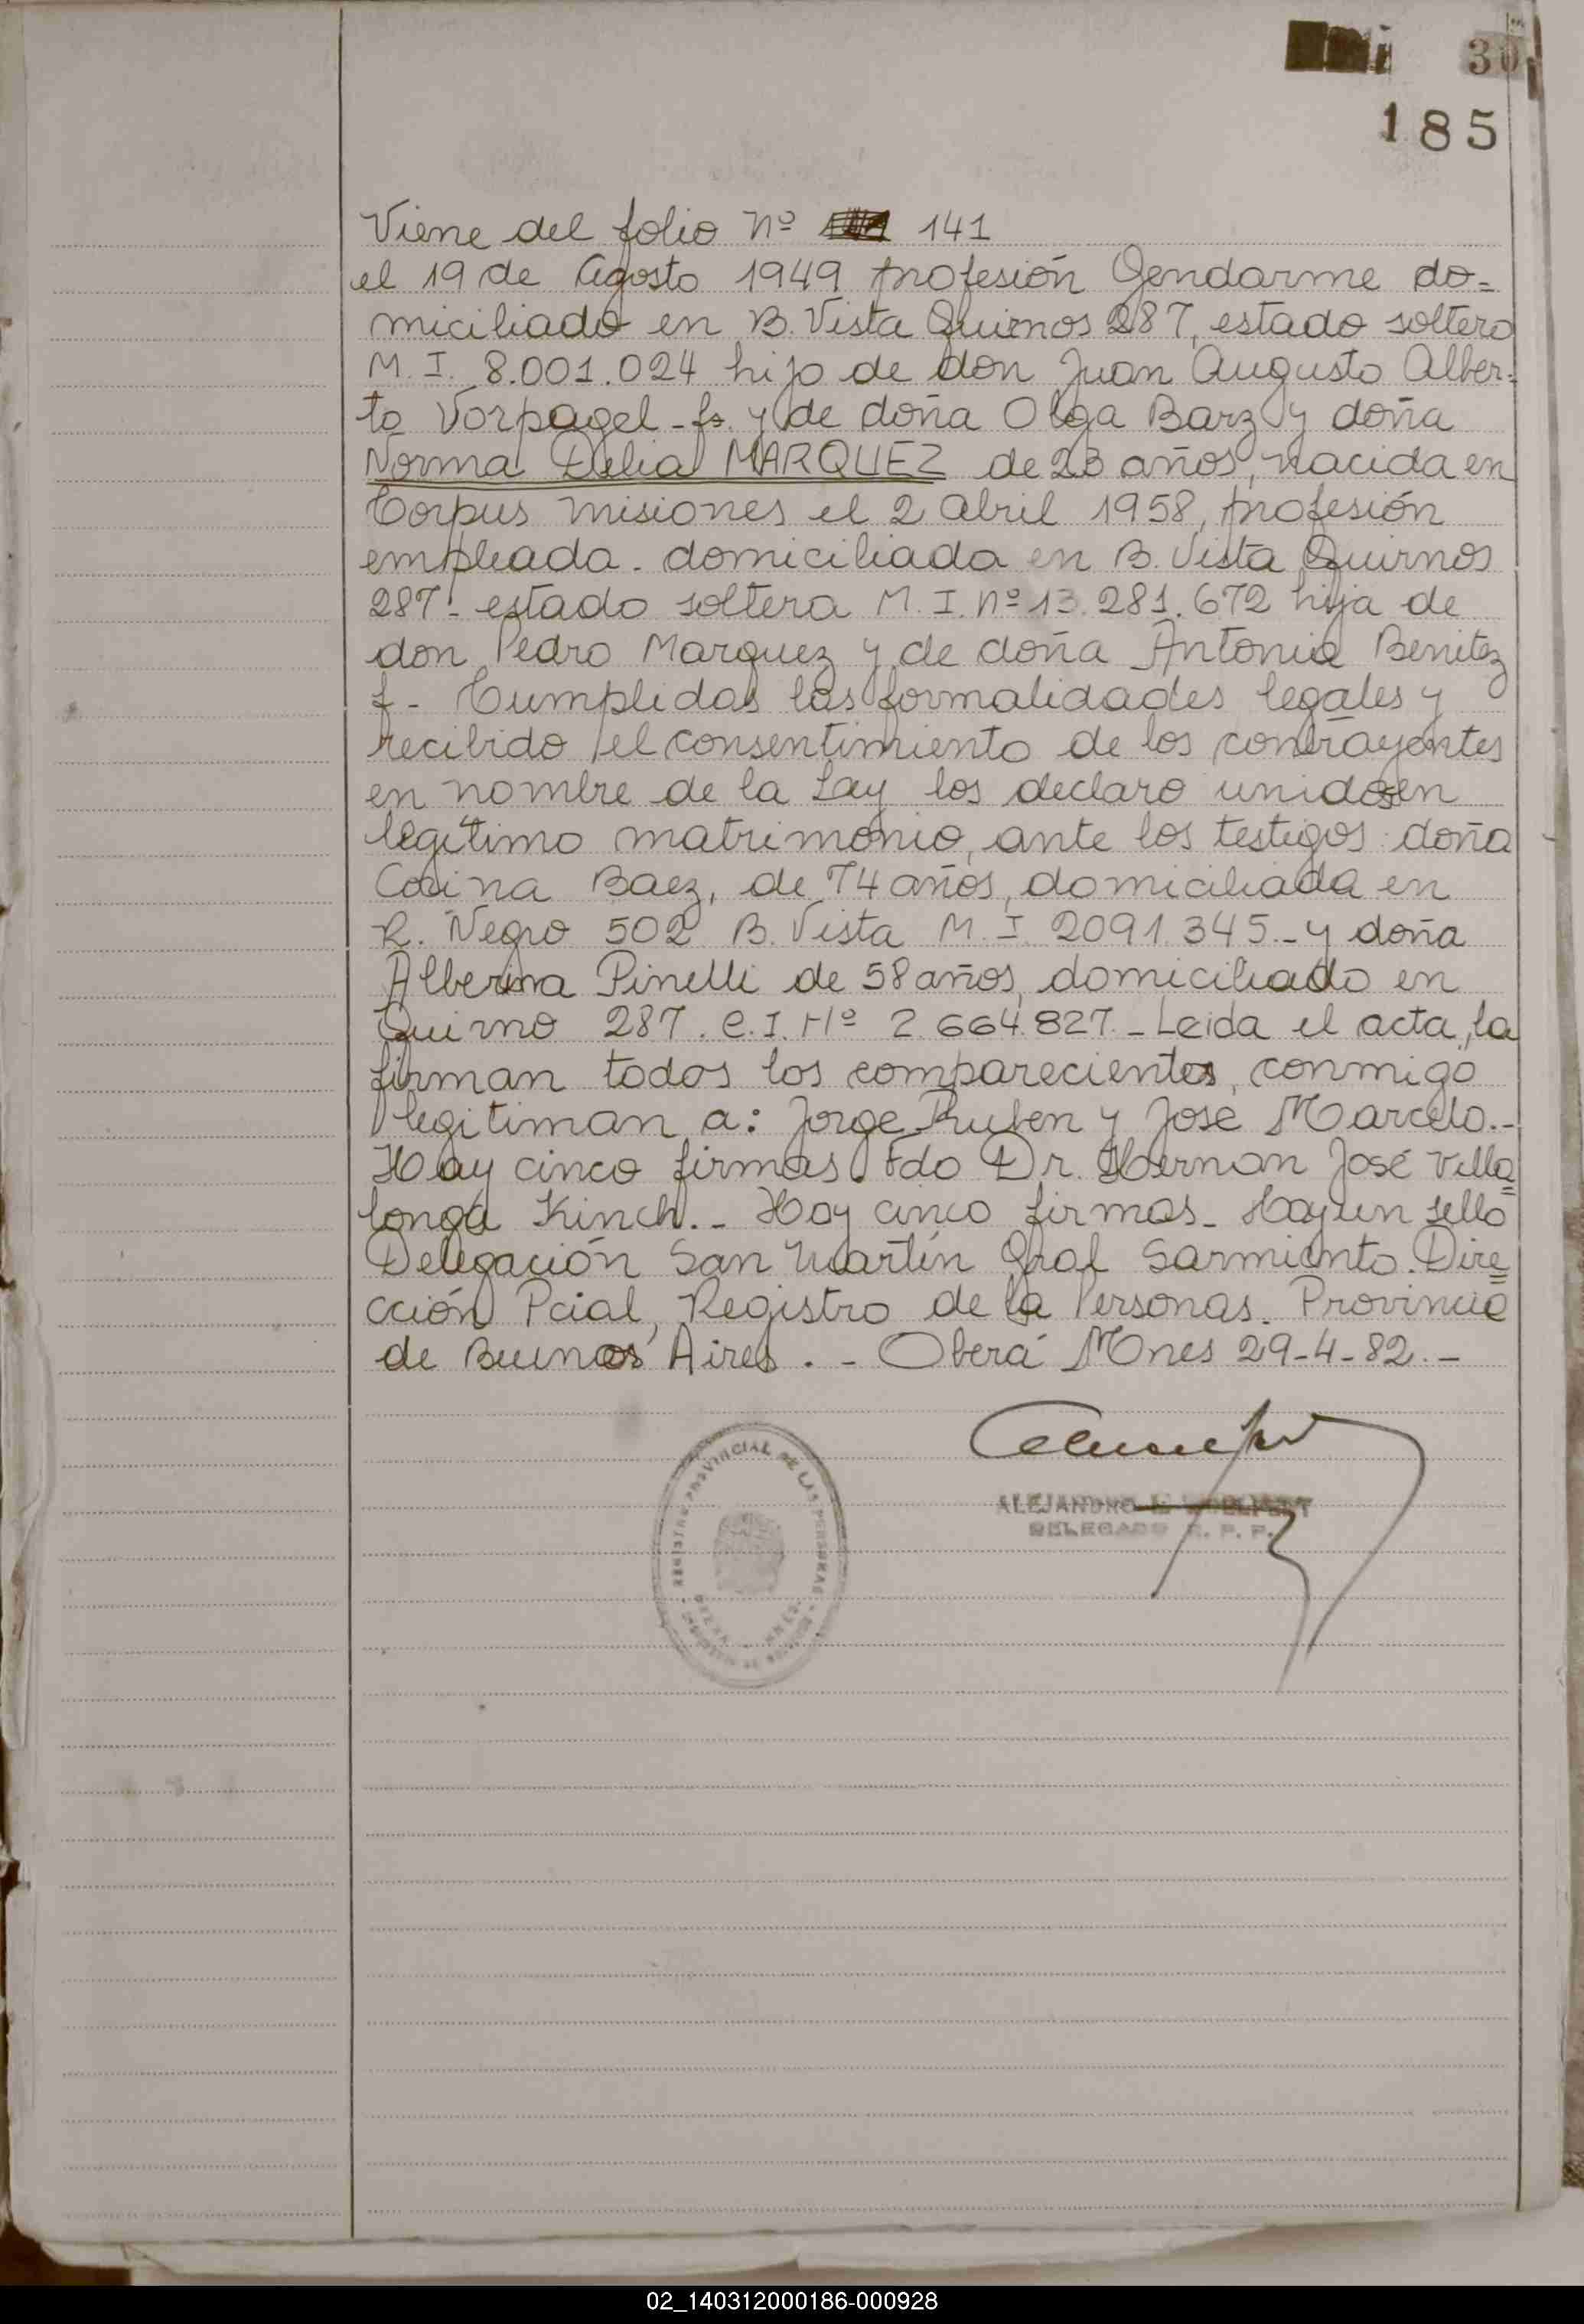 30
185
Viene del folio Nº 141
el 19 de Agosto 1949 profesión Gendarme do=
miciliado en B. Vista Quirnos 287, estado soltero
M. I. 8.001.024 hijo de don Juan Augusto Alber=
to Vorpagel - fs. y de doña Olga Barz y doña
Norma Delia MARQUEZ de 23 años, nacida en
Corpus Misiones el 2 Abril 1958, profesión
empleada. domiciliada en B. Vista Quirnos
287 - estado soltera M. I. Nº 13.281.672 hija de
don Pedro Marquez y de doña Antonia Benitez
f - Cumplidas las formalidades legales y
recibido el consentimiento de los contrayentes
en nombre de la Ley los declaro unidos en
legítimo matrimonio, ante los testigos: doña
Baez, de 74 años, domiciliada en
R. Negro 502 B. Vista M. I. 2091.345 - y doña
Alberina Pinelli de 58 años, domiciliado en
Quirno 287. C. I. Nº 2.664.827 - Leida el acta, la
firman todos los comparecientes, conmigo
legitiman a: Jorge Ruben y José Marcelo. -
Hay cinco firmas. Fdo Dr. Hernan José Villa=
longa Kinch. - Hay cinco firmas - Hay un sello
Delegación San Martín Gral Sarmiento. Dire=
cción Pcial, Registro de la Personas. Provincia
de Buenos Aires. - Oberá Mnes 29-4-82. -
REGISTRO PROVINCIAL DE LAS PERSONAS
ALEJANDRO E.
DELEGADO R. P. P.
02_140312000186-000928